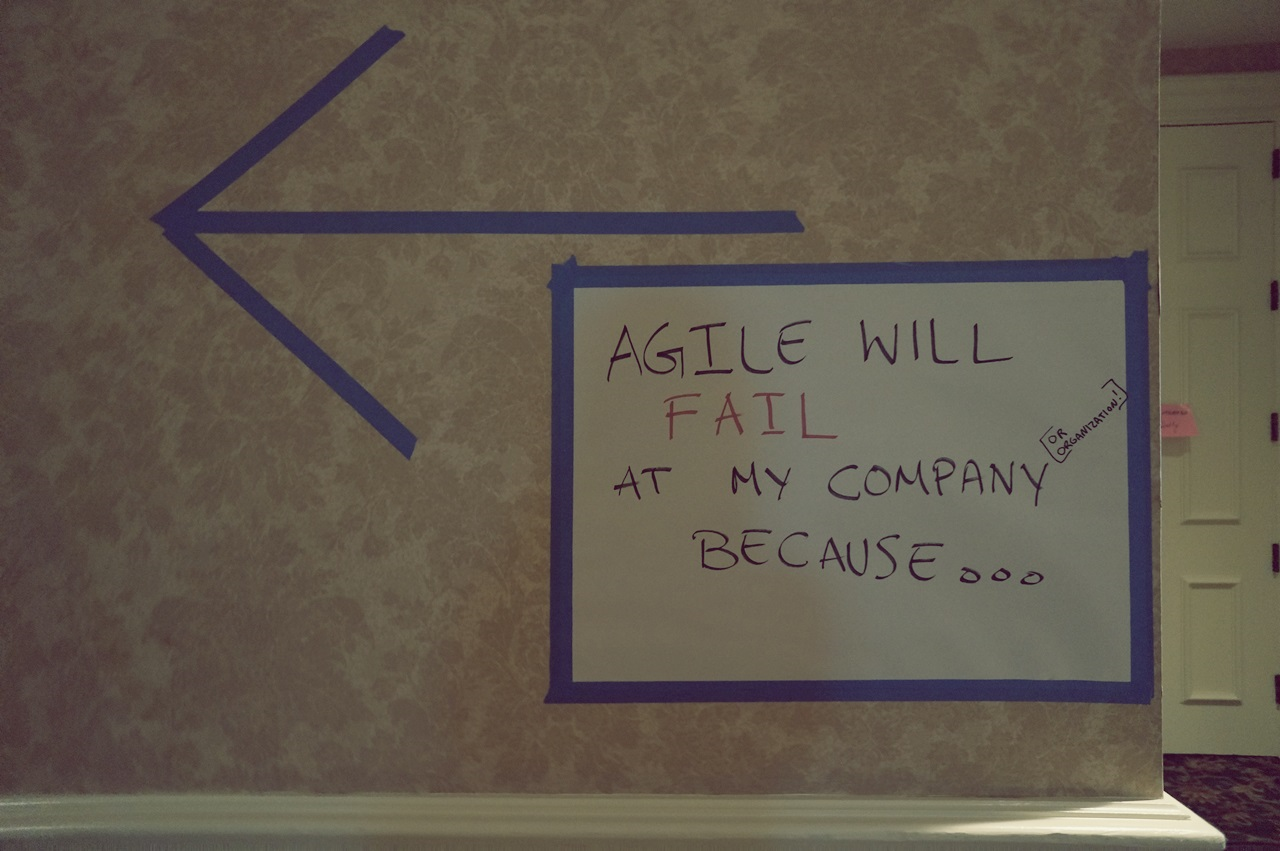 AGILE WILL
FAIL
AT MY COMPANY
OR
ORGANIZATION!
BECAUSE...